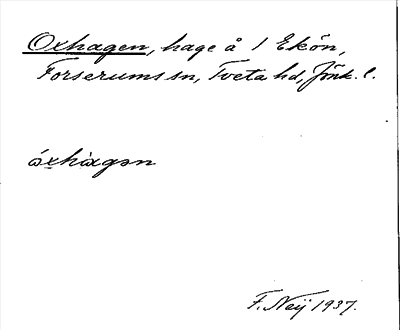 Oxhagen, hage å 1 Ekön,
Forserums sn, Tveta hd, Jönk. l.
óxhàgən
F. Neij 1937.